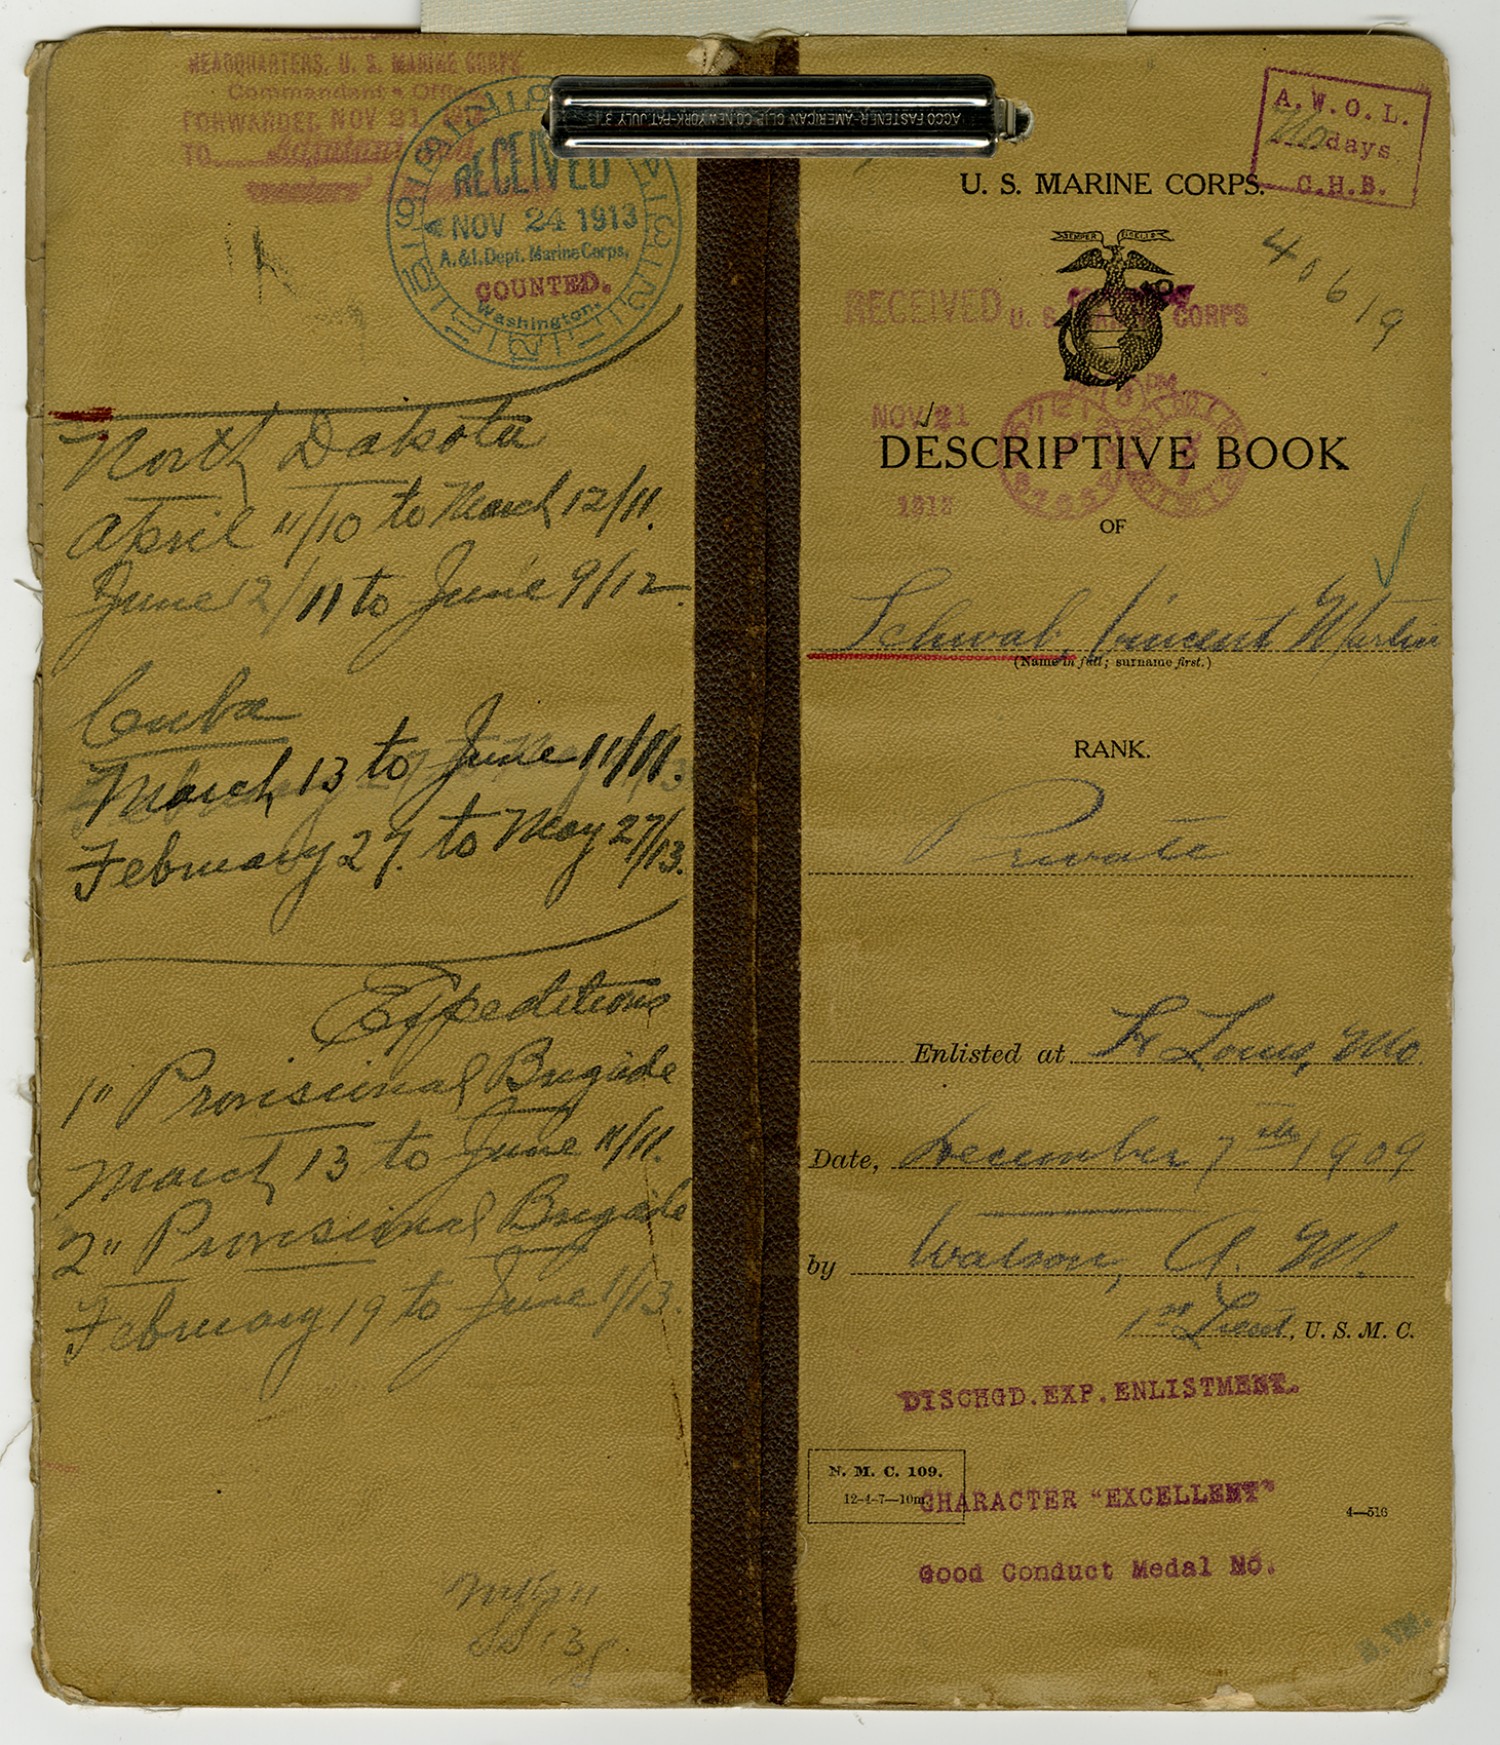 HEADQUARTERS, U. S. MARINE CORPS
Commandant's Office
FORWARDED, NOV 21 1913
TO
RECEIVED
NOV 24 1913
A. & I. Dept. Marine Corps,
COUNTED.
Washington.
North Dakota
April 11/10 to March 12/11.
June 12/11 to June 9/12.
Cuba
March 13 to June 11/11.
February 27. to May 27/13.
Expeditions
1" Provisional Brigade
March 13 to June 11/11.
2" Provisional Brigade
February 19 to June 1/13.
ACCO FASTENER-AMERICAN CLIP CO. NEW YORK-PAT. JULY
A. W. O. L.
No days
C.H.B.
U. S. MARINE CORPS.
SEMPER FIDELIS
40619
RECEIVED
U. S. MARINE CORPS
NOV 21
1913
DESCRIPTIVE BOOK
OF
Schwab, Vincent Martin
(Name in full; surname first.)
RANK.
Private
Enlisted at St Louis, Mo
Date, December 7th 1909
by Watson, A. M.
1st Lieut, U. S. M. C.
DISCHGD. EXP. ENLISTMENT.
N. M. C. 109.
12-4-7—10m
CHARACTER "EXCELLENT"
4—516
Good Conduct Medal No.